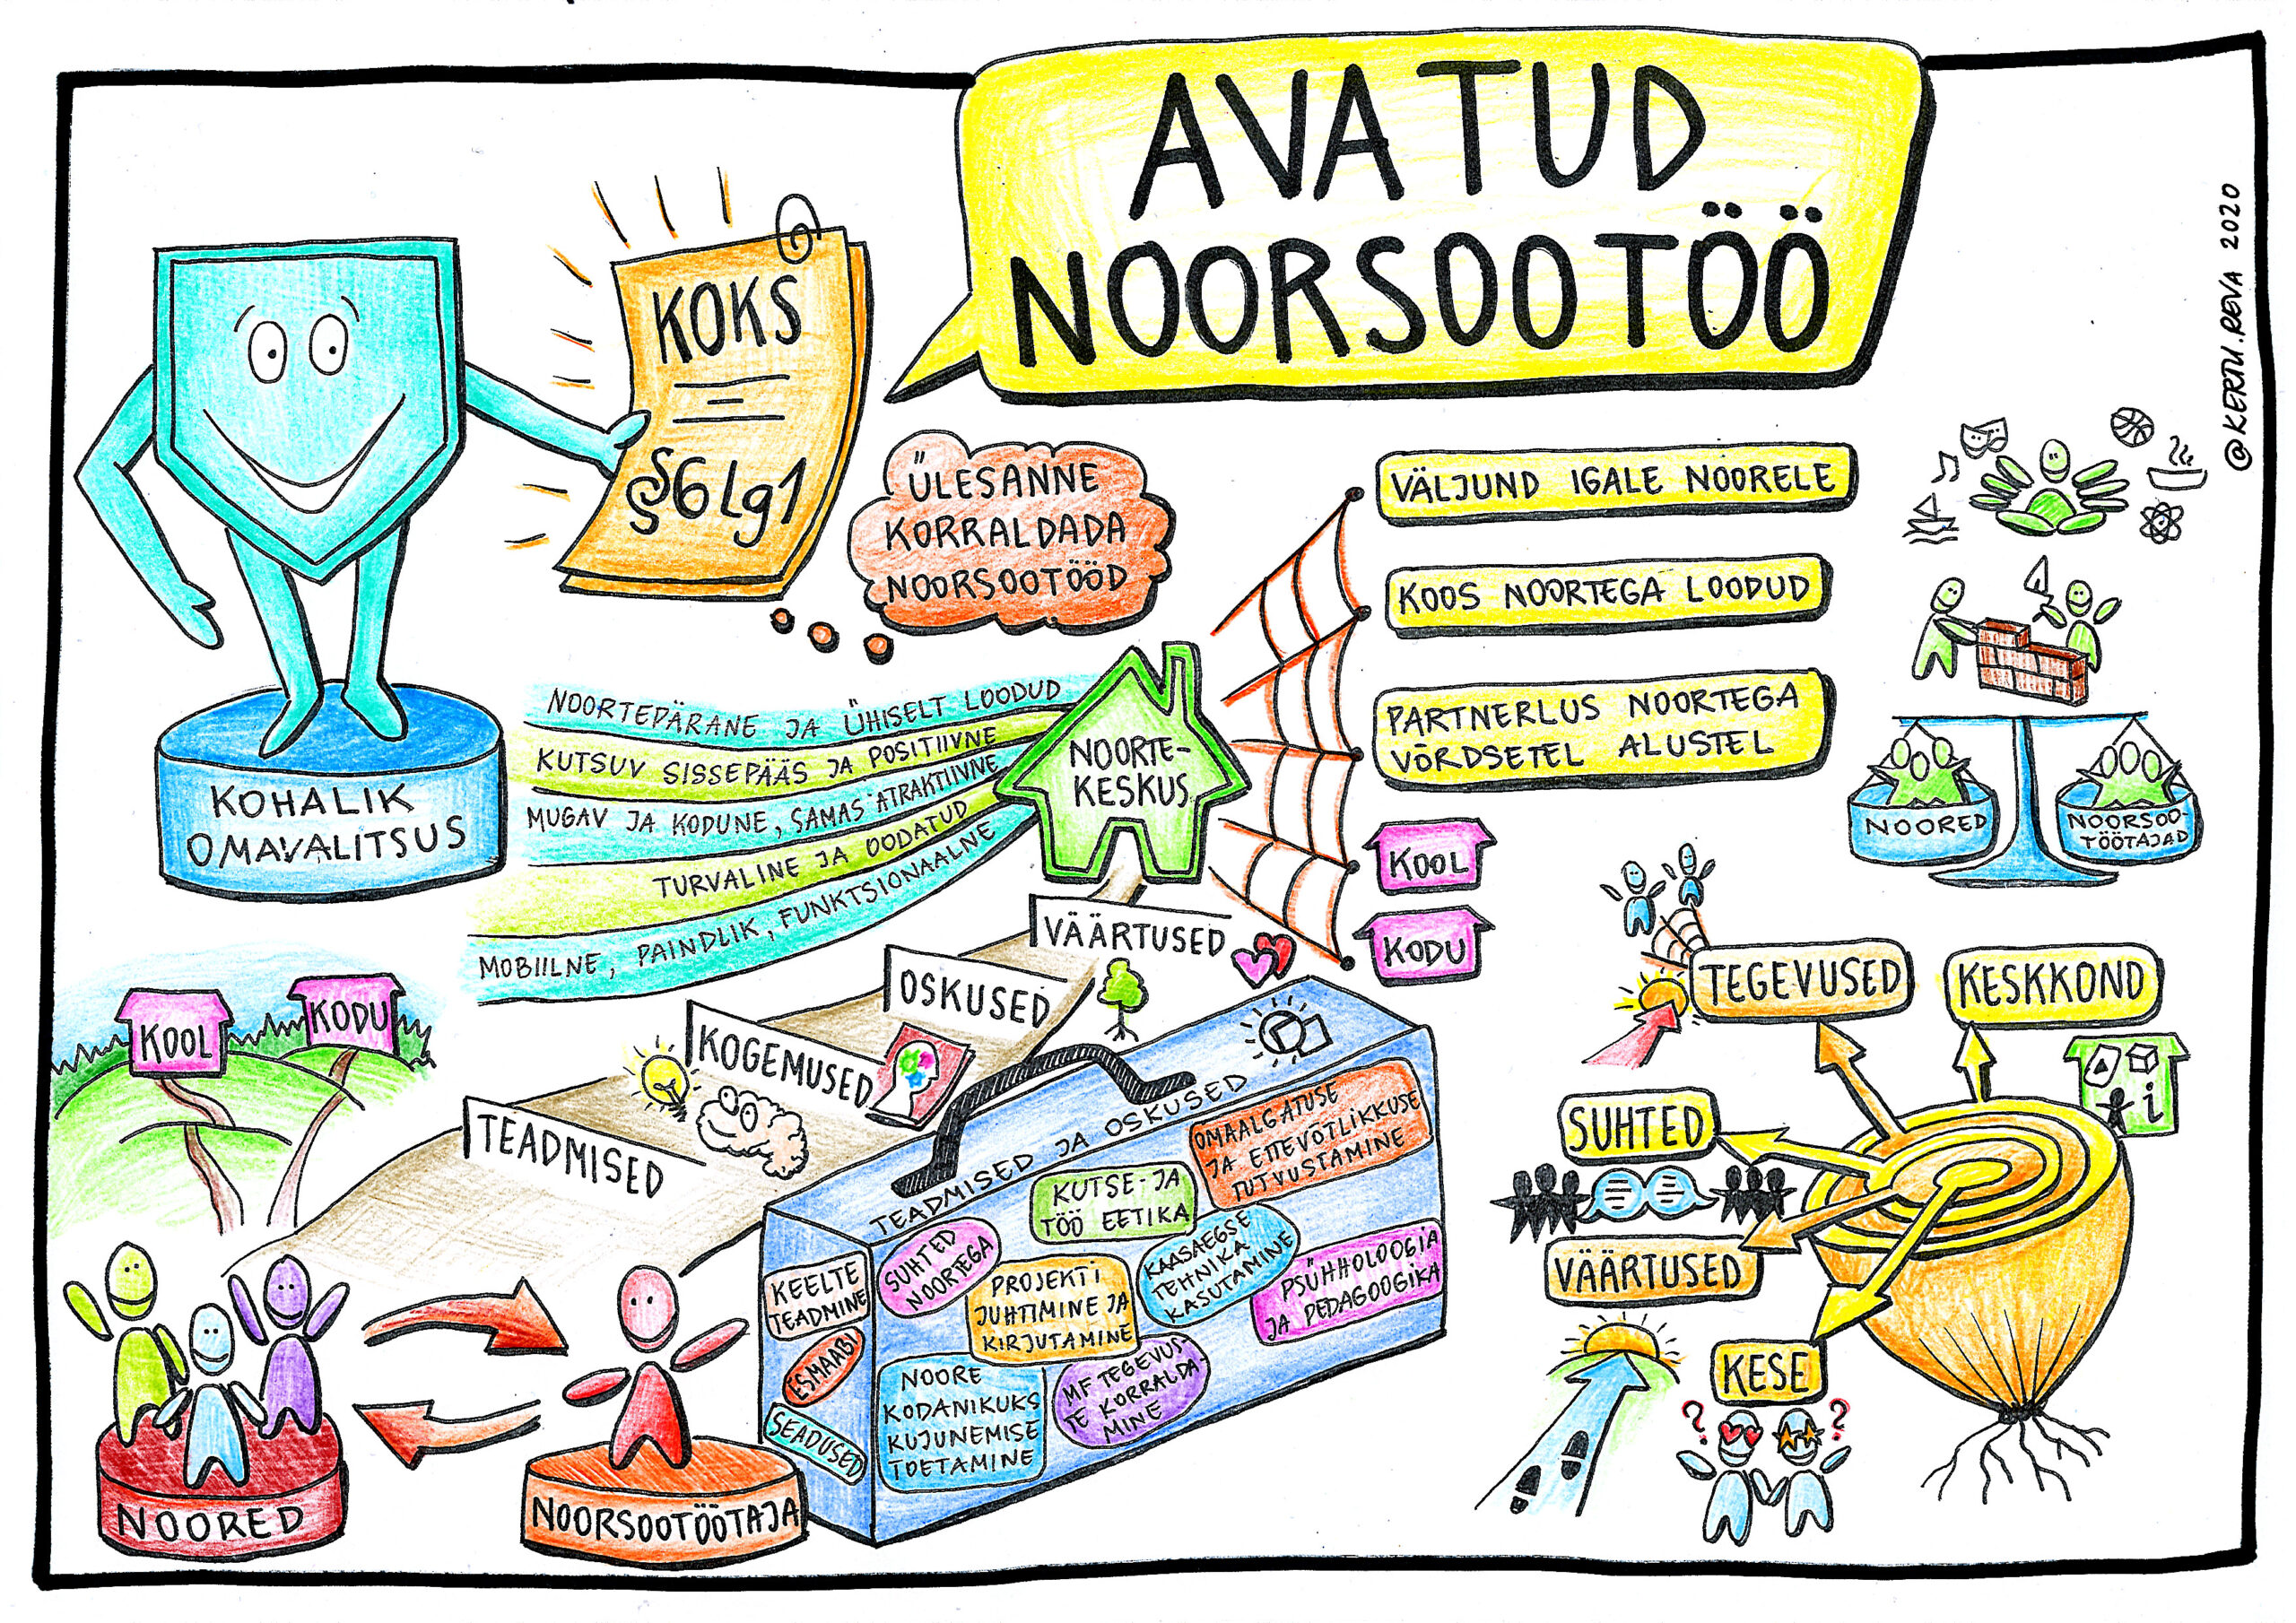 AVATUD
NOORSOOTÖÖ
@KERTU.REVA 2020
KOKS
§6 Lg1
ÜLESANNE
KORRALDADA
NOORSOOTÖÖD
KOHALIK
OMAVALITSUS
NOORTEPÄRANE JA ÜHISELT LOODUD
KUTSUV SISSEPÄÄS JA POSITIIVNE
MUGAV JA KODUNE, SAMAS ATRAKTIIVNE
TURVALINE JA OODATUD
MOBIILNE, PAINDLIK, FUNKTSIONAALNE
NOORTE-
KESKUS
VÄLJUND IGALE NOORELE
KOOS NOORTEGA LOODUD
PARTNERLUS NOORTEGA
VÕRDSETEL ALUSTEL
KOOL
KODU
NOORED
NOORSOO-
TÖÖTAJAD
KOOL
KODU
VÄÄRTUSED
OSKUSED
KOGEMUSED
TEADMISED
NOORED
NOORSOOTÖÖTAJA
TEADMISED JA OSKUSED
KEELTE
TEADMINE
ESMAABI
SEADUSED
SUHTED
NOORTEGA
KUTSE- JA
TÖÖ EETIKA
OMAALGATUSE
JA ETTEVÕTLIKKUSE
TUTVUSTAMINE
PROJEKTI
JUHTIMINE JA
KIRJUTAMINE
KAASAEGSE
TEHNIKA
KASUTAMINE
PSÜHHOLOOGIA
JA PEDAGOOGIKA
NOORE
KODANIKUKS
KUJUNEMISE
TOETAMINE
MF TEGEVUS-
TE KORRALDA-
MINE
TEGEVUSED
KESKKOND
i
SUHTED
VÄÄRTUSED
KESE
? ?